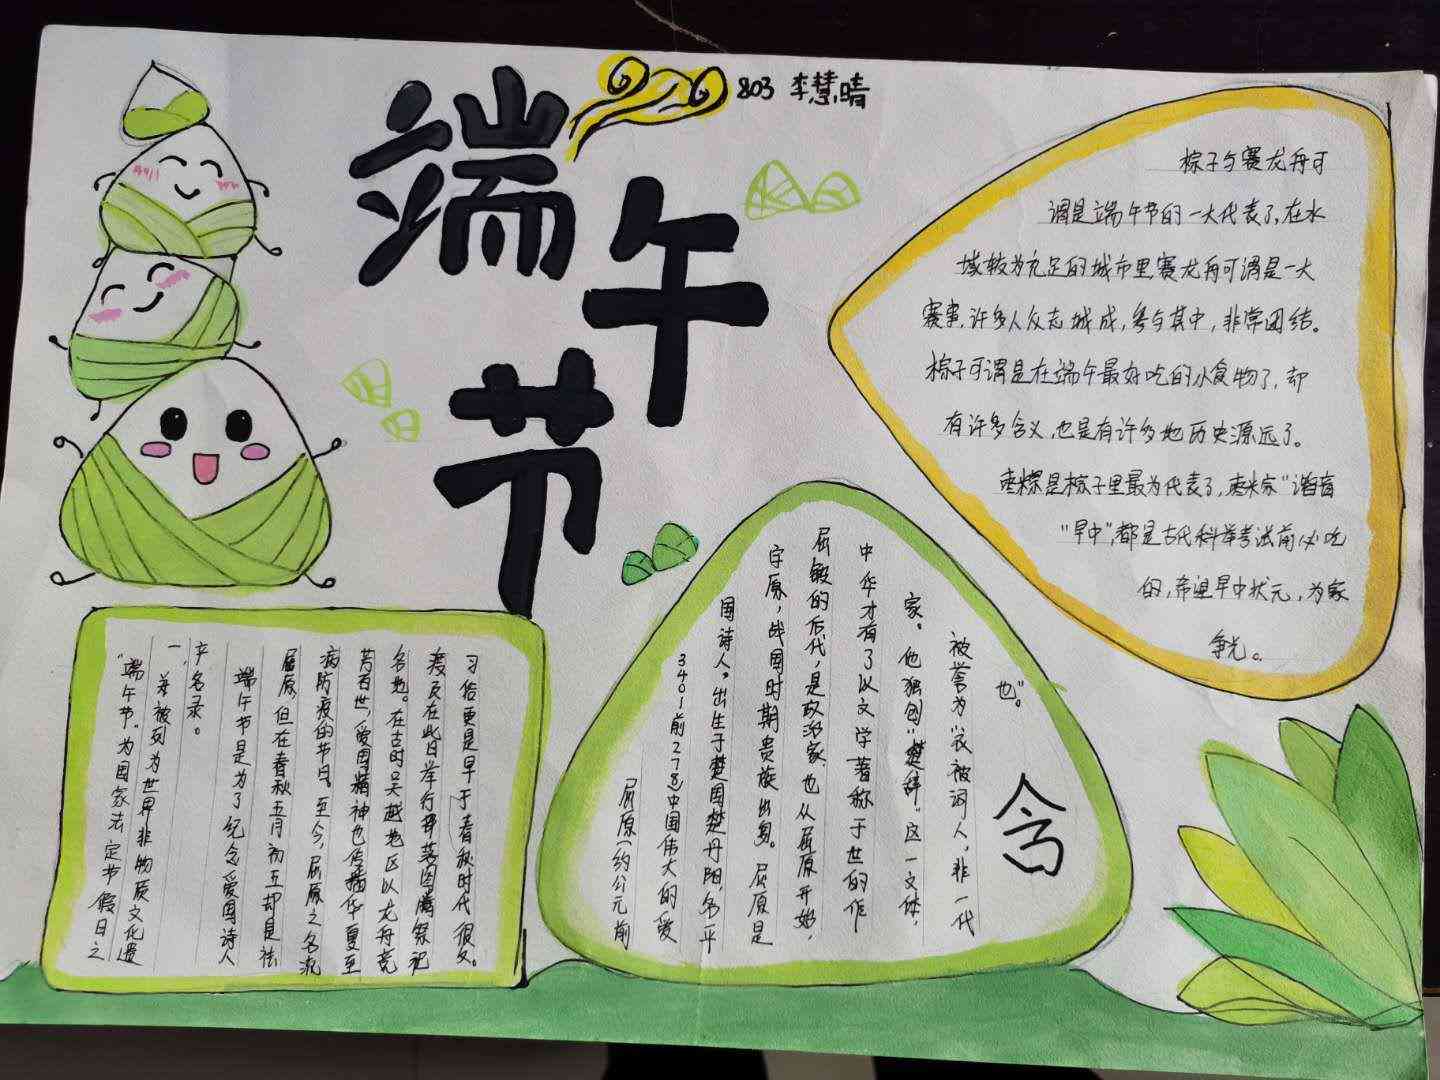 端午节
803 李慧晴
粽子与赛龙舟可
谓是端午节的一大代表了，在水
域较为充足的城市里赛龙舟可谓是一大
赛事，许多人众志城成，参与其中，非常团结。
粽子可谓是在端午最好吃的小食物了，却
有许多含义，也是有许多地历史源远了。
枣粽是粽子里最为代表了，枣粽“谐音
“早中”，都是古代科举考试前必吃
的，希望早中状元，为家
争光。
“端午节。为国家法定节假日之
一，并被列为世界非物质文化遗
产名录。
端午节是为了纪念爱国诗人
屈原，但在春秋五月初五却是祛
病防疫的节日。至今，屈原之名流
芳百世，爱国精神也传播华夏至
各地。在古时吴越地区以龙舟竞
渡及在此日举行部落图腾祭祀
习俗更是早于春秋时代很久。
屈原（约公元前
340-前278）中国伟大的爱
国诗人。出生于楚国楚丹阳，名平
字原，战国时期贵族出身。屈原是
屈瑕的后代，是政治家，也从屈原开始，
中华才有了以文学著称于世的作
家。他独创“楚辞”这一文体，
被誉为“衣被词人，非一代
也”。
含